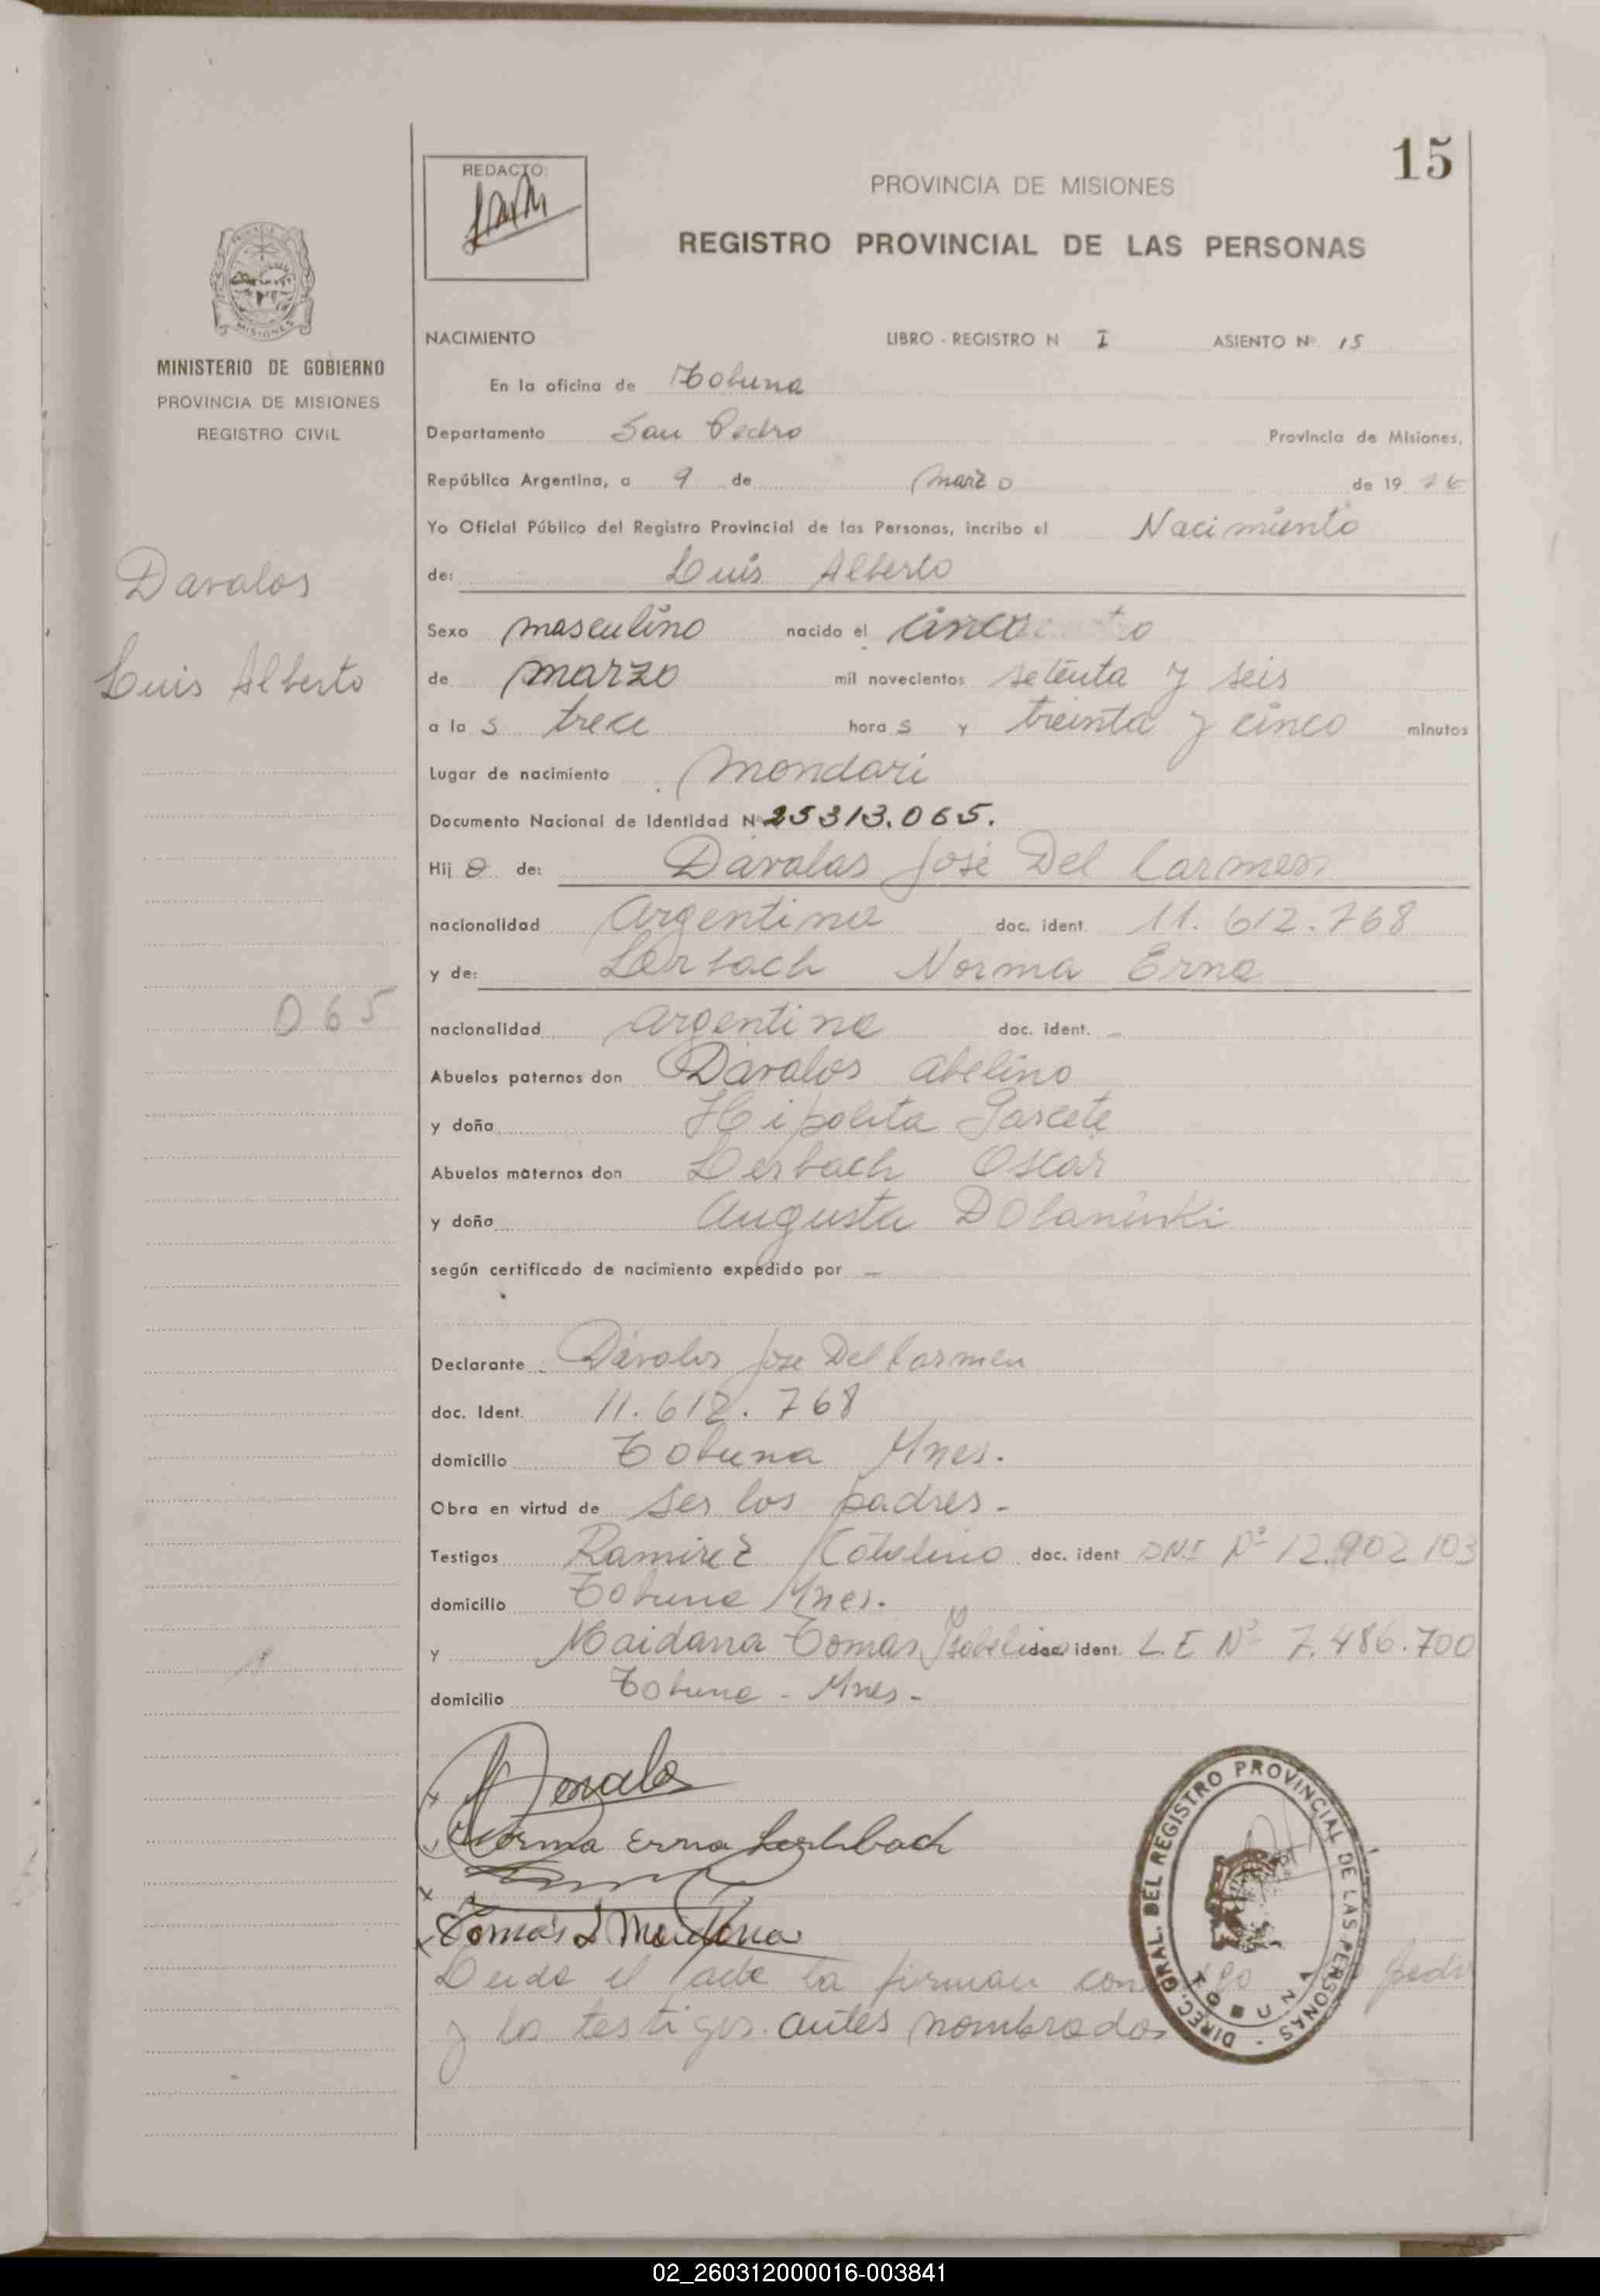 15
REDACTO:
PROVINCIA DE MISIONES
REGISTRO PROVINCIAL DE LAS PERSONAS
MISIONES
MINISTERIO DE GOBIERNO
PROVINCIA DE MISIONES
REGISTRO CIVIL
NACIMIENTO LIBRO - REGISTRO N I ASIENTO Nº 15
En la oficina de Tobuna
Departamento San Pedro Provincia de Misiones,
República Argentina, a 9 de marzo de 19 76
Yo Oficial Público del Registro Provincial de las Personas, incribo el Nacimiento
Davalos
Luis Alberto
de: Luis Alberto
Sexo masculino nacido el cinco
de marzo mil novecientos setenta y seis
a la s trece hora s y treinta y cinco minutos
Lugar de nacimiento Mondori
Documento Nacional de Identidad Nº 25313.065.
Hij o de: Davalos José Del Carmen
nacionalidad Argentina doc. ident. 11.612.768
y de: Lerbach Norma Erna
065
nacionalidad argentina doc. ident. -
Abuelos paternos don Davalos Abelino
y doña Hipolita Garcete
Abuelos maternos don Lerbach Oscar
y doña Augusta
según certificado de nacimiento expedido por —
Declarante Dávalos Jose Del Carmen
doc. Ident. 11.612.768
domicilio Tobuna Mnes.
Obra en virtud de ser los padres -
Testigos Ramirez Catalino doc. ident DNI Nº 12.902 103
domicilio Tobuna Mnes.
y Maidana Tomas Isabelino doc. ident. L.E Nº 7.486.700
domicilio Tobuna - Mnes -
Davalo
Norma Erna Lerhbach
Tomás I Maidana
Leida el acta la firman
y los testigos antes nombrados
DIREC. GRAL. DEL REGISTRO PROVINCIAL DE LAS PERSONAS -
TOBUNA
02_260312000016-003841